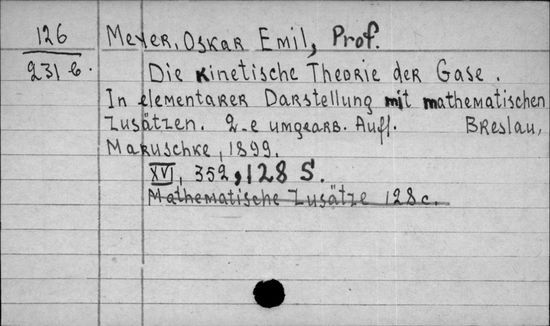 126 Meyer, Oskar Emil, Prof.
231 б. Die kinetische Theorie der Gase.
In elementarer Darstellung mit mathematischen
Zusätzen. 2-e umgearb. Aufl. Breslau,
Maruschke, 1899.
XVI, 352, 128 S.
Mathematische Zusätze 128 c.